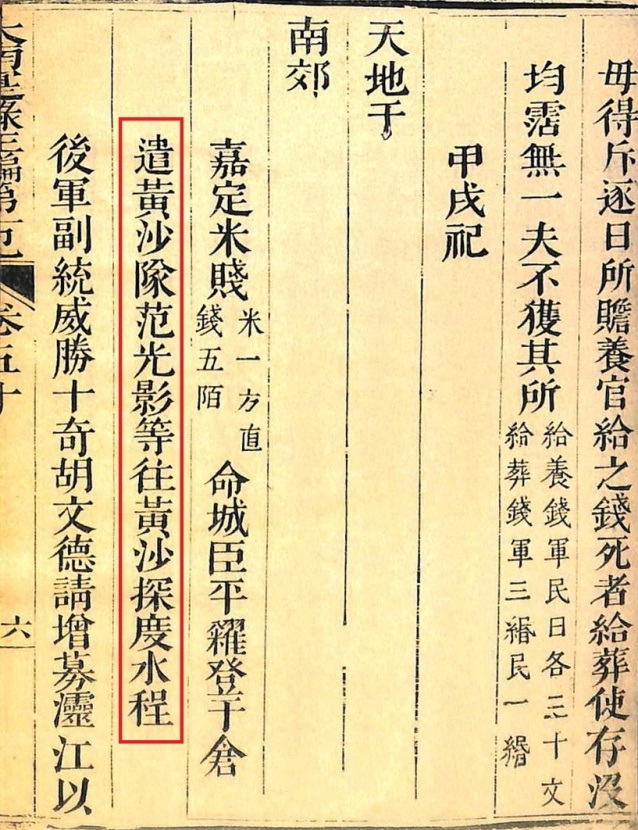 毋得斥逐日所贍養官給之錢死者給葬使存沒
均霑無一夫不獲其所
給養錢軍民日各三十文
給葬錢軍三緡民一緡
甲戌祀
天地于
南郊
嘉定米賤
米一方直
錢五陌
命城臣平糴登于倉
遣黃沙隊范光影等往黃沙探度水程
後軍副統威勝十奇胡文德請增募江以
大南寔錄正編第一紀
卷五十
六